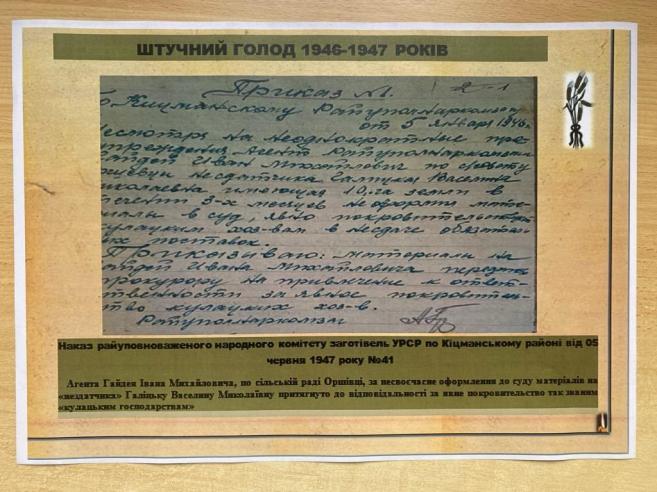 ШТУЧНИЙ ГОЛОД 1946-1947 РОКІВ
Приказ №1.
Кицманскому Райуполнаркомзаг
от 5 января 1946г.
Несмотря на неоднократные пре-
дупреждения Агент Райуполнаркомзага
Гайдей Иван Михайлович по
несдатчика Галицкая Васелина
Николаевна имеющая 10,га земли в
течении 3-х месяцев не оформил мате-
риалы в суд, явно покровительствуя
кулацким хоз-вам в несдаче обязатель-
ных поставок.
Приказываю: Материалы на
Гайдей Ивана Михайловича передать
прокурору на привлечение к ответ-
ственности за явное покровительс-
тво кулацких хоз-в.
Райуполнаркомзаг
Наказ райуповноваженого народного комітету заготівель УРСР по Кіцманському районі від 05
червня 1947 року №41
Агента Гайдея Івана Михайловича, по сільській раді Оршівці, за несвоєчасне оформлення до суду матеріалів на
«нездатчика» Галіцьку Васелину Миколаївну притягнуто до відповідальності за явне покровительство так званим
«кулацьким господарствам»